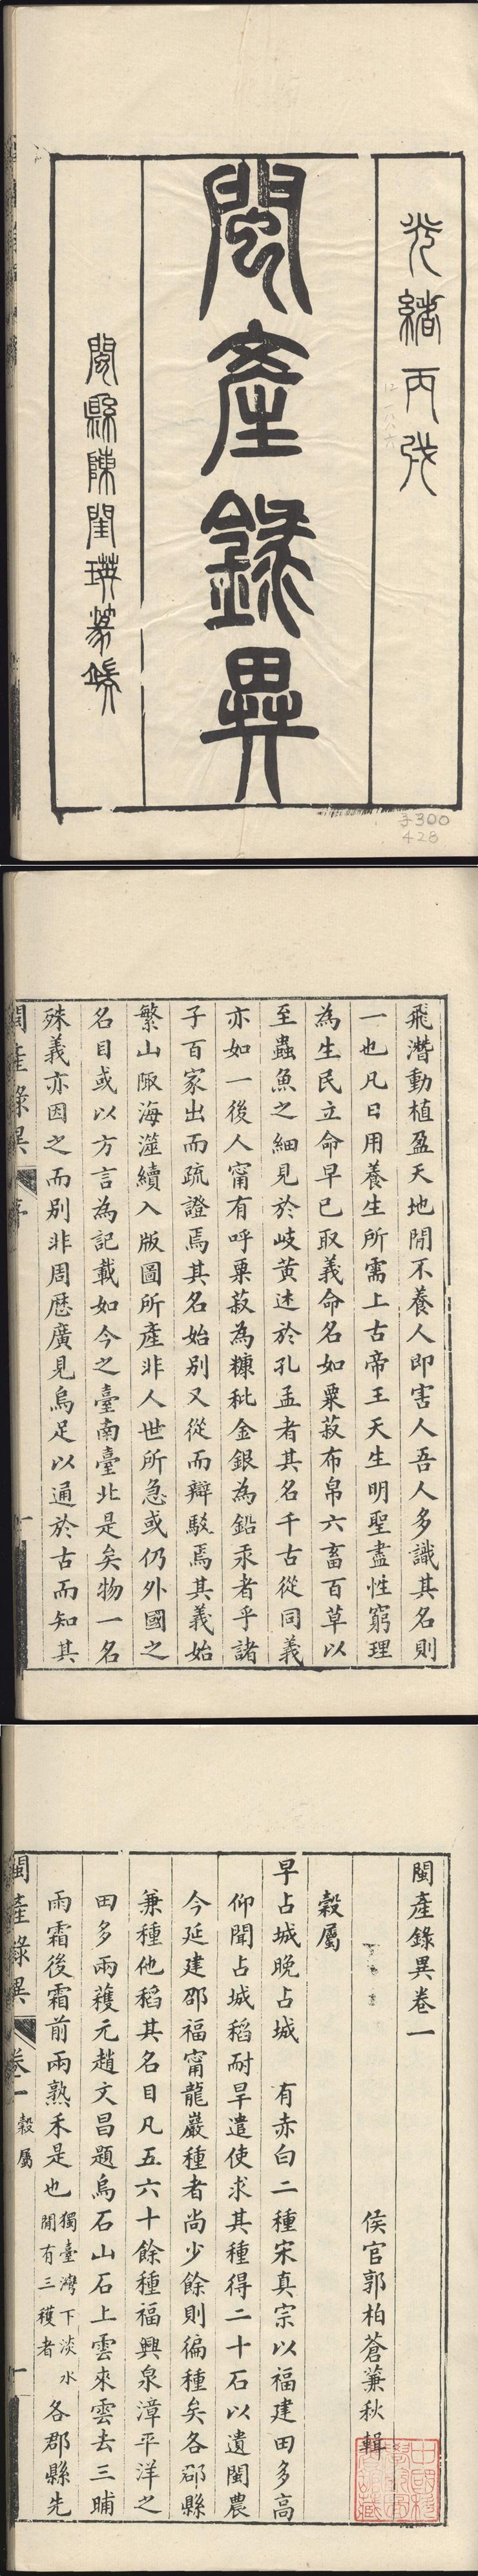 光緒丙戌
閩產錄異
閩縣陳閨瑛篆耑
子300
428
飛潛動植盈天地閒不養人即害人吾人多識其名則
一也凡日用養生所需上古帝王天生明聖盡性窮理
為生民立命早已取義命名如粟菽布帛六畜百草以
至蟲魚之細見於岐黃述於孔孟者其名千古從同義
亦如一後人甯有呼粟菽為糠秕金銀為鉛汞者乎諸
子百家出而疏證焉其名始別又從而辯駁焉其義始
繁山陬海澨續入版圖所產非人世所急或仍外國之
名目或以方言為記載如今之臺南臺北是矣物一名
殊義亦因之而別非周歷廣見烏足以通於古而知其
閩產錄異
序
一
閩產錄異卷一
侯官郭柏蒼蒹秋輯
穀屬
早占城晚占城 有赤白二種宋真宗以福建田多高
仰聞占城稻耐旱遣使求其種得二十石以遺閩農
今延建邵福甯龍巖種者尚少餘則徧種矣各郡縣
兼種他稻其名目凡五六十餘種福興泉漳平洋之
田多兩穫元趙文昌題烏石山石上雲來雲去三晡
雨霜後霜前兩熟禾是也獨臺灣下淡水閒有三穫者各郡縣先
閩產錄異
卷一
穀屬
一